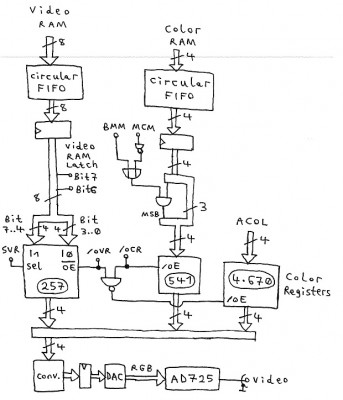 Video
RAM
8
circular
FIFO
8
Color
RAM
4
circular
FIFO
4
BMM MCM
4
Video
RAM
Latch
Bit7
Bit6
8
MSB
3
Bit
7..4
4
4
Bit
3..0
SVR
In
sel
I0
OE
257
/OVR
/OCR
4
/OE
541
ACOL
4
4.670
/OE
Color
Registers
4
4
4
4
conv.
DAC
RGB
AD725
Video